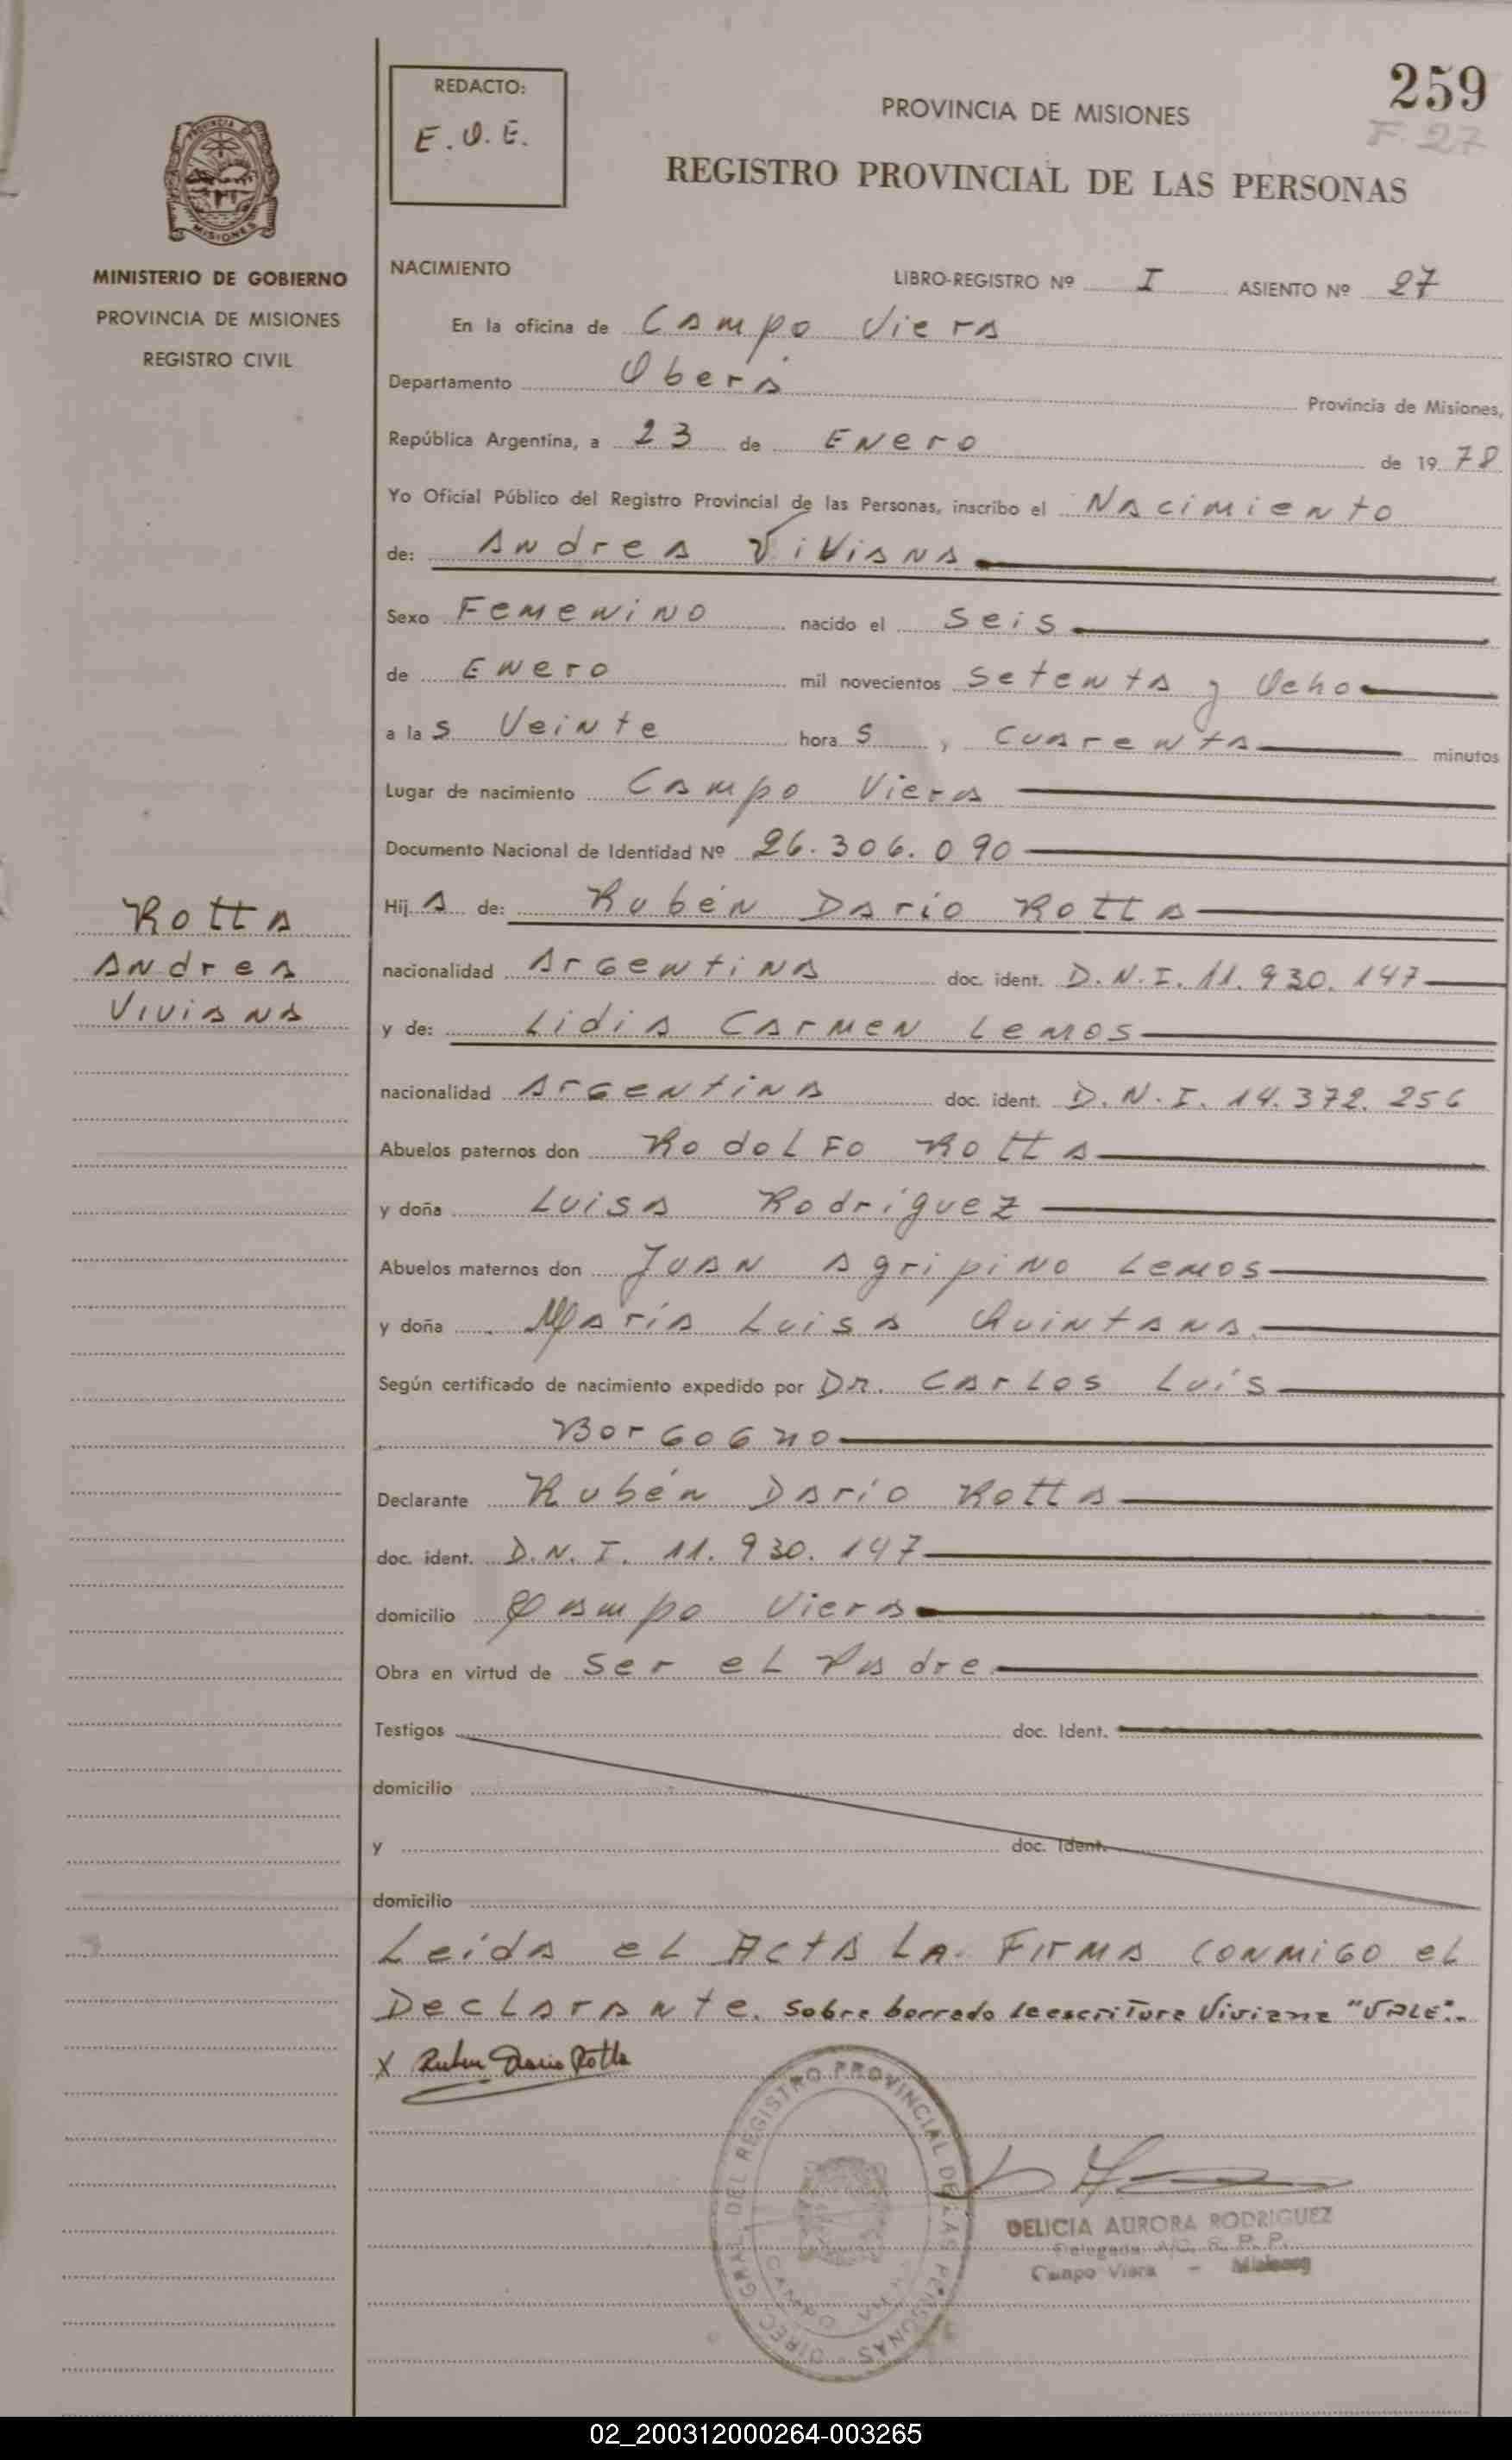 259
F. 27
REDACTO:
E.O.E.
PROVINCIA DE MISIONES
REGISTRO PROVINCIAL DE LAS PERSONAS
PROVINCIA DE
MISIONES
MINISTERIO DE GOBIERNO
PROVINCIA DE MISIONES
REGISTRO CIVIL
NACIMIENTO
LIBRO-REGISTRO Nº I ASIENTO Nº 27
En la oficina de Campo Viera
Departamento Oberá Provincia de Misiones,
República Argentina, a 23 de Enero de 1978
Yo Oficial Público del Registro Provincial de las Personas, inscribo el Nacimiento
de: Andrea Viviana
Sexo Femenino nacido el Seis
de Enero mil novecientos setenta y Ocho
a las Veinte horas, Cuarenta minutos
Lugar de nacimiento Campo Viera
Documento Nacional de Identidad Nº 26.306.090
Rotta
Andrea
Viviana
Hija de: Rubén Darío Rotta
nacionalidad Argentina doc. ident. D.N.I. 11.930.147
y de: Lidia Carmen Lemos
nacionalidad Argentina doc. ident. D.N.I. 14.372.256
Abuelos paternos don Rodolfo Rotta
y doña Luisa Rodríguez
Abuelos maternos don Juan Agripino Lemos
y doña María Luisa Quintana
Según certificado de nacimiento expedido por Dr. Carlos Luís
Borgogno
Declarante Rubén Darío Rotta
doc. ident. D.N.I. 11.930.147
domicilio Campo Viera
Obra en virtud de ser el Padre
Testigos doc. Ident.
domicilio
y doc. Ident.
domicilio
Leida el Acta La Firma conmigo el
Declarante. Sobre borrado leescritura Viviana "VALE".-
X Ruben Dario Rotta
DIREC. GRAL. DEL REGISTRO PROVINCIAL DE LAS PERSONAS
CAMPO VIERA
DELICIA AURORA RODRIGUEZ
Delegada A/C. R. P. P.
Campo Viera - Misiones
02_200312000264-003265